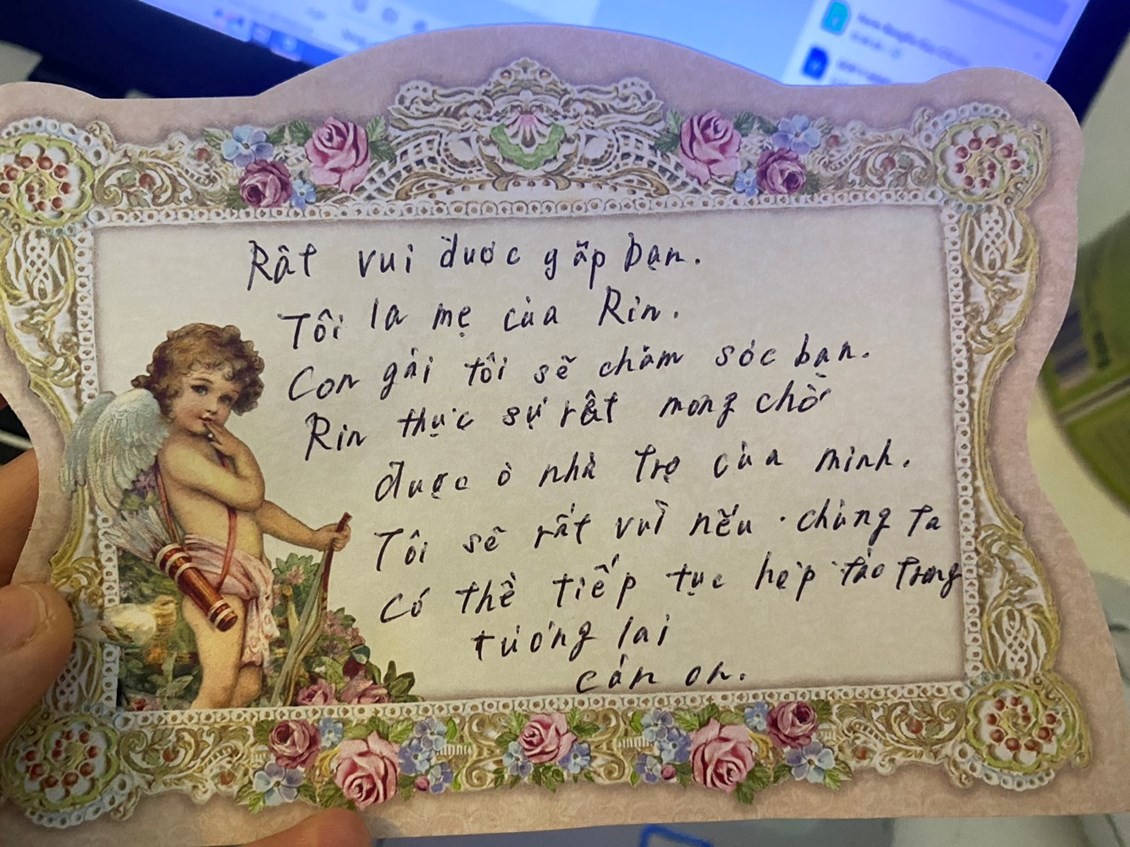 Rất vui được gặp bạn.
Tôi la mẹ của Rin.
Con gái tôi sẽ chăm sóc bạn.
Rin thực sự rất mong chờ
được ở nhà trọ của mình.
Tôi sẽ rất vui nếu chúng ta
có thể tiếp tục hẹp táo trong
tương lai
cán on.